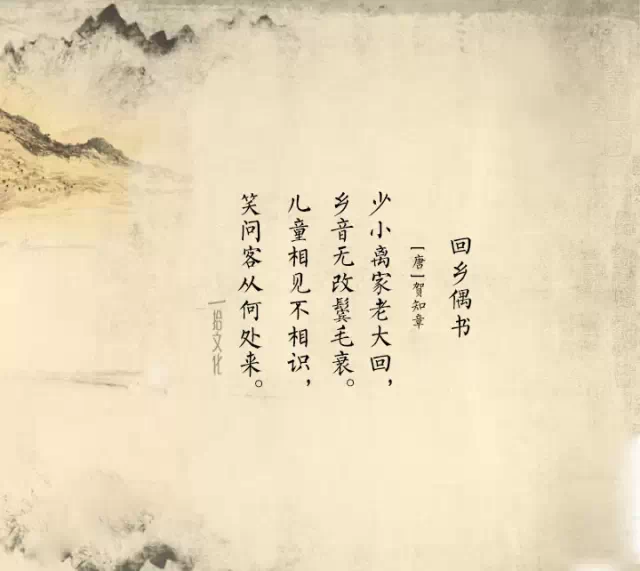 回乡偶书
[唐]贺知章
少小离家老大回，
乡音无改鬓毛衰。
儿童相见不相识，
笑问客从何处来。
拾文化